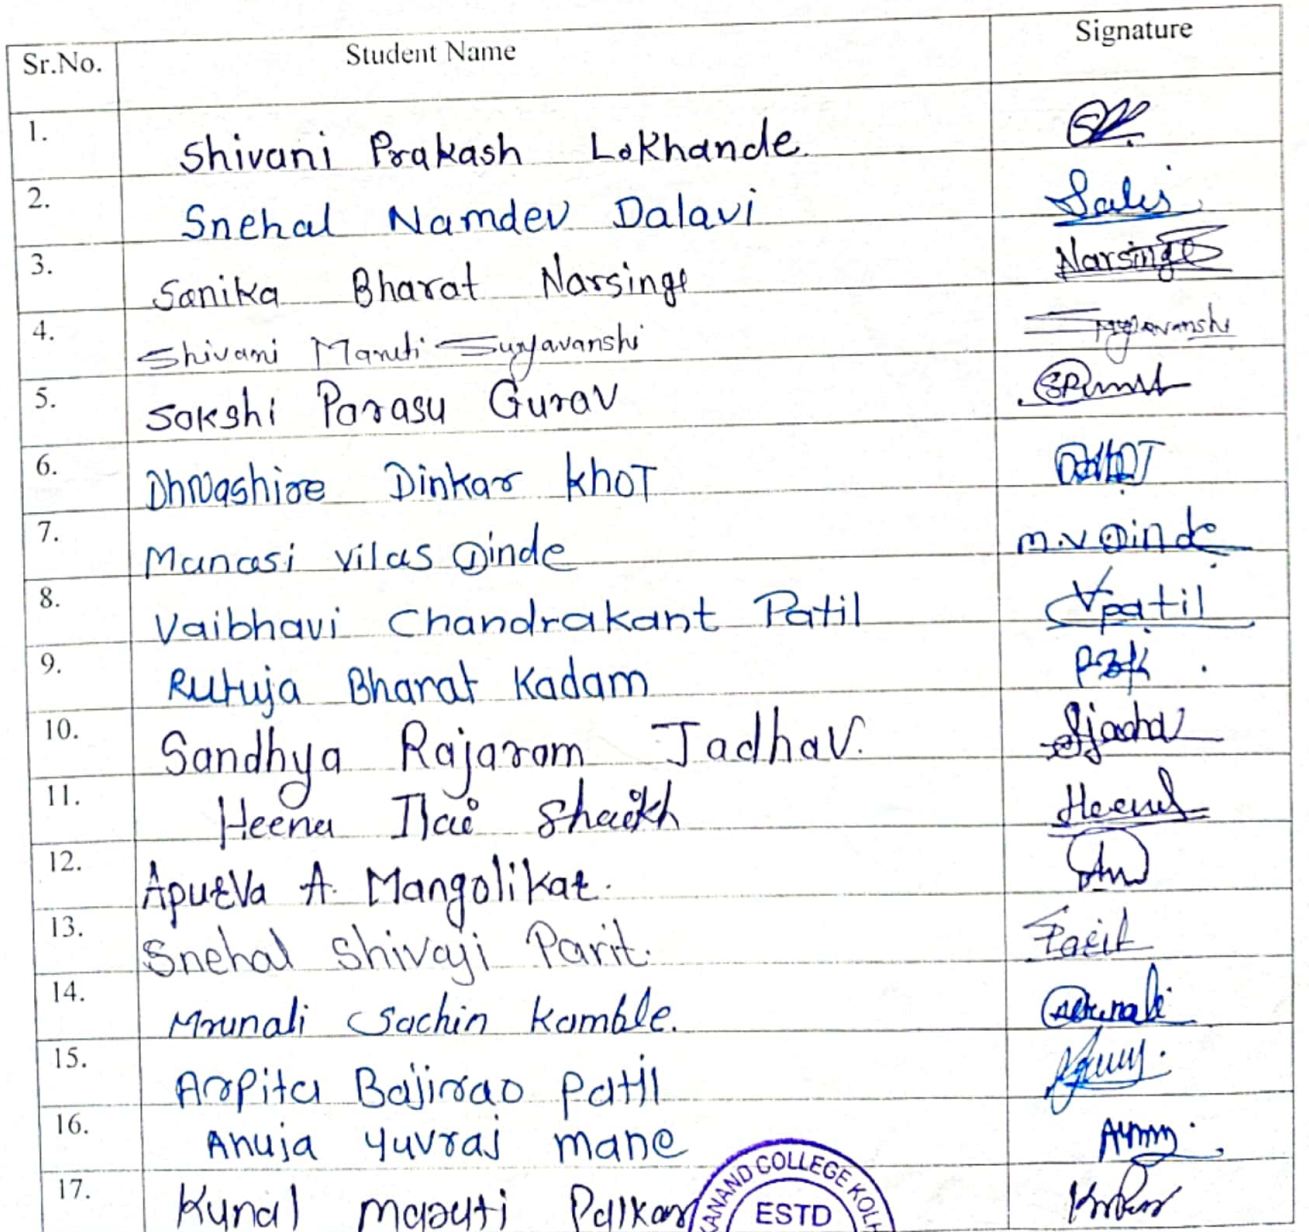 Sr.No. Student Name Signature
1. Shivani Prakash Lokhande.
2. Snehal Namdev Dalavi
3. Sanika Bharat Narsinge Narsinge
4. Shivani Maruti Suryavanshi Suryavanshi
5. Sakshi Parasu Gurav
6. Dinkar Khot
7. Manasi Vilas Dinde M.V Dinde
8. Vaibhavi Chandrakant Patil Vpatil
9. Rutuja Bharat Kadam
10. Sandhya Rajaram Jadhav. Sjadhav
11. Heena Ilai Shaikh Heena
12. Apurva A. Mangolikar.
13. Snehal Shivaji Parit. Parit
14. Mrunali Sachin Kamble. Mrunali
15. Arpita Bajirao Patil
16. Anuja Yuvraj mane
17. Kunal Maruti
ANAND COLLEGE
ESTD